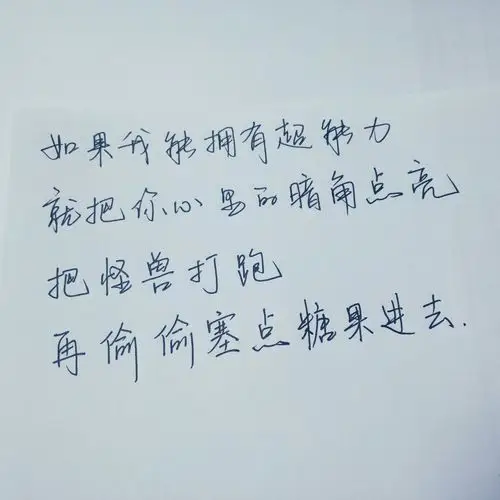 如果我能拥有超能力
就把你心里的暗角点亮
把怪兽打跑
再偷偷塞点糖果进去.